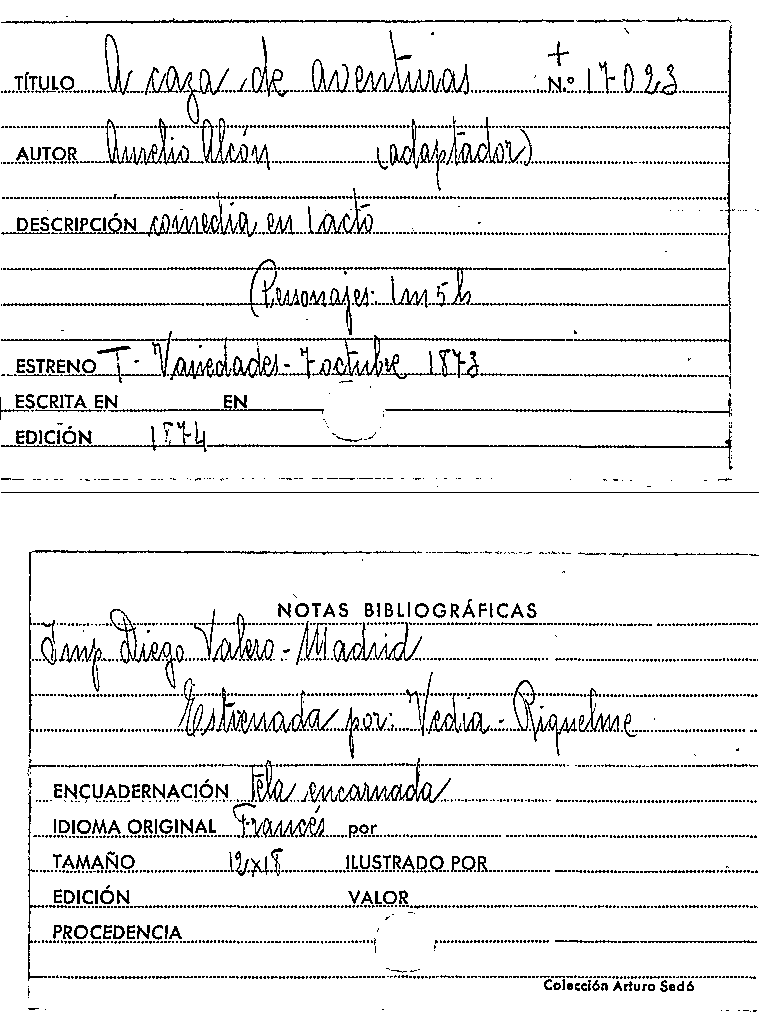 TÍTULO A caza de aventuras + N.º 17-023
AUTOR Aurelio Alcón (adaptador)
DESCRIPCIÓN comedia en 1 acto
(Personajes: 1m 5h
ESTRENO T. Variedades - 7 octubre 1873
ESCRITA EN EN
EDICIÓN 1874
NOTAS BIBLIOGRÁFICAS
Imp Diego Valero - Madrid
Estrenada por: Vedia - Riquelme
ENCUADERNACIÓN tela encarnada
IDIOMA ORIGINAL Francés por
TAMAÑO 12x18 ILUSTRADO POR
EDICIÓN VALOR
PROCEDENCIA
Colección Arturo Sedó